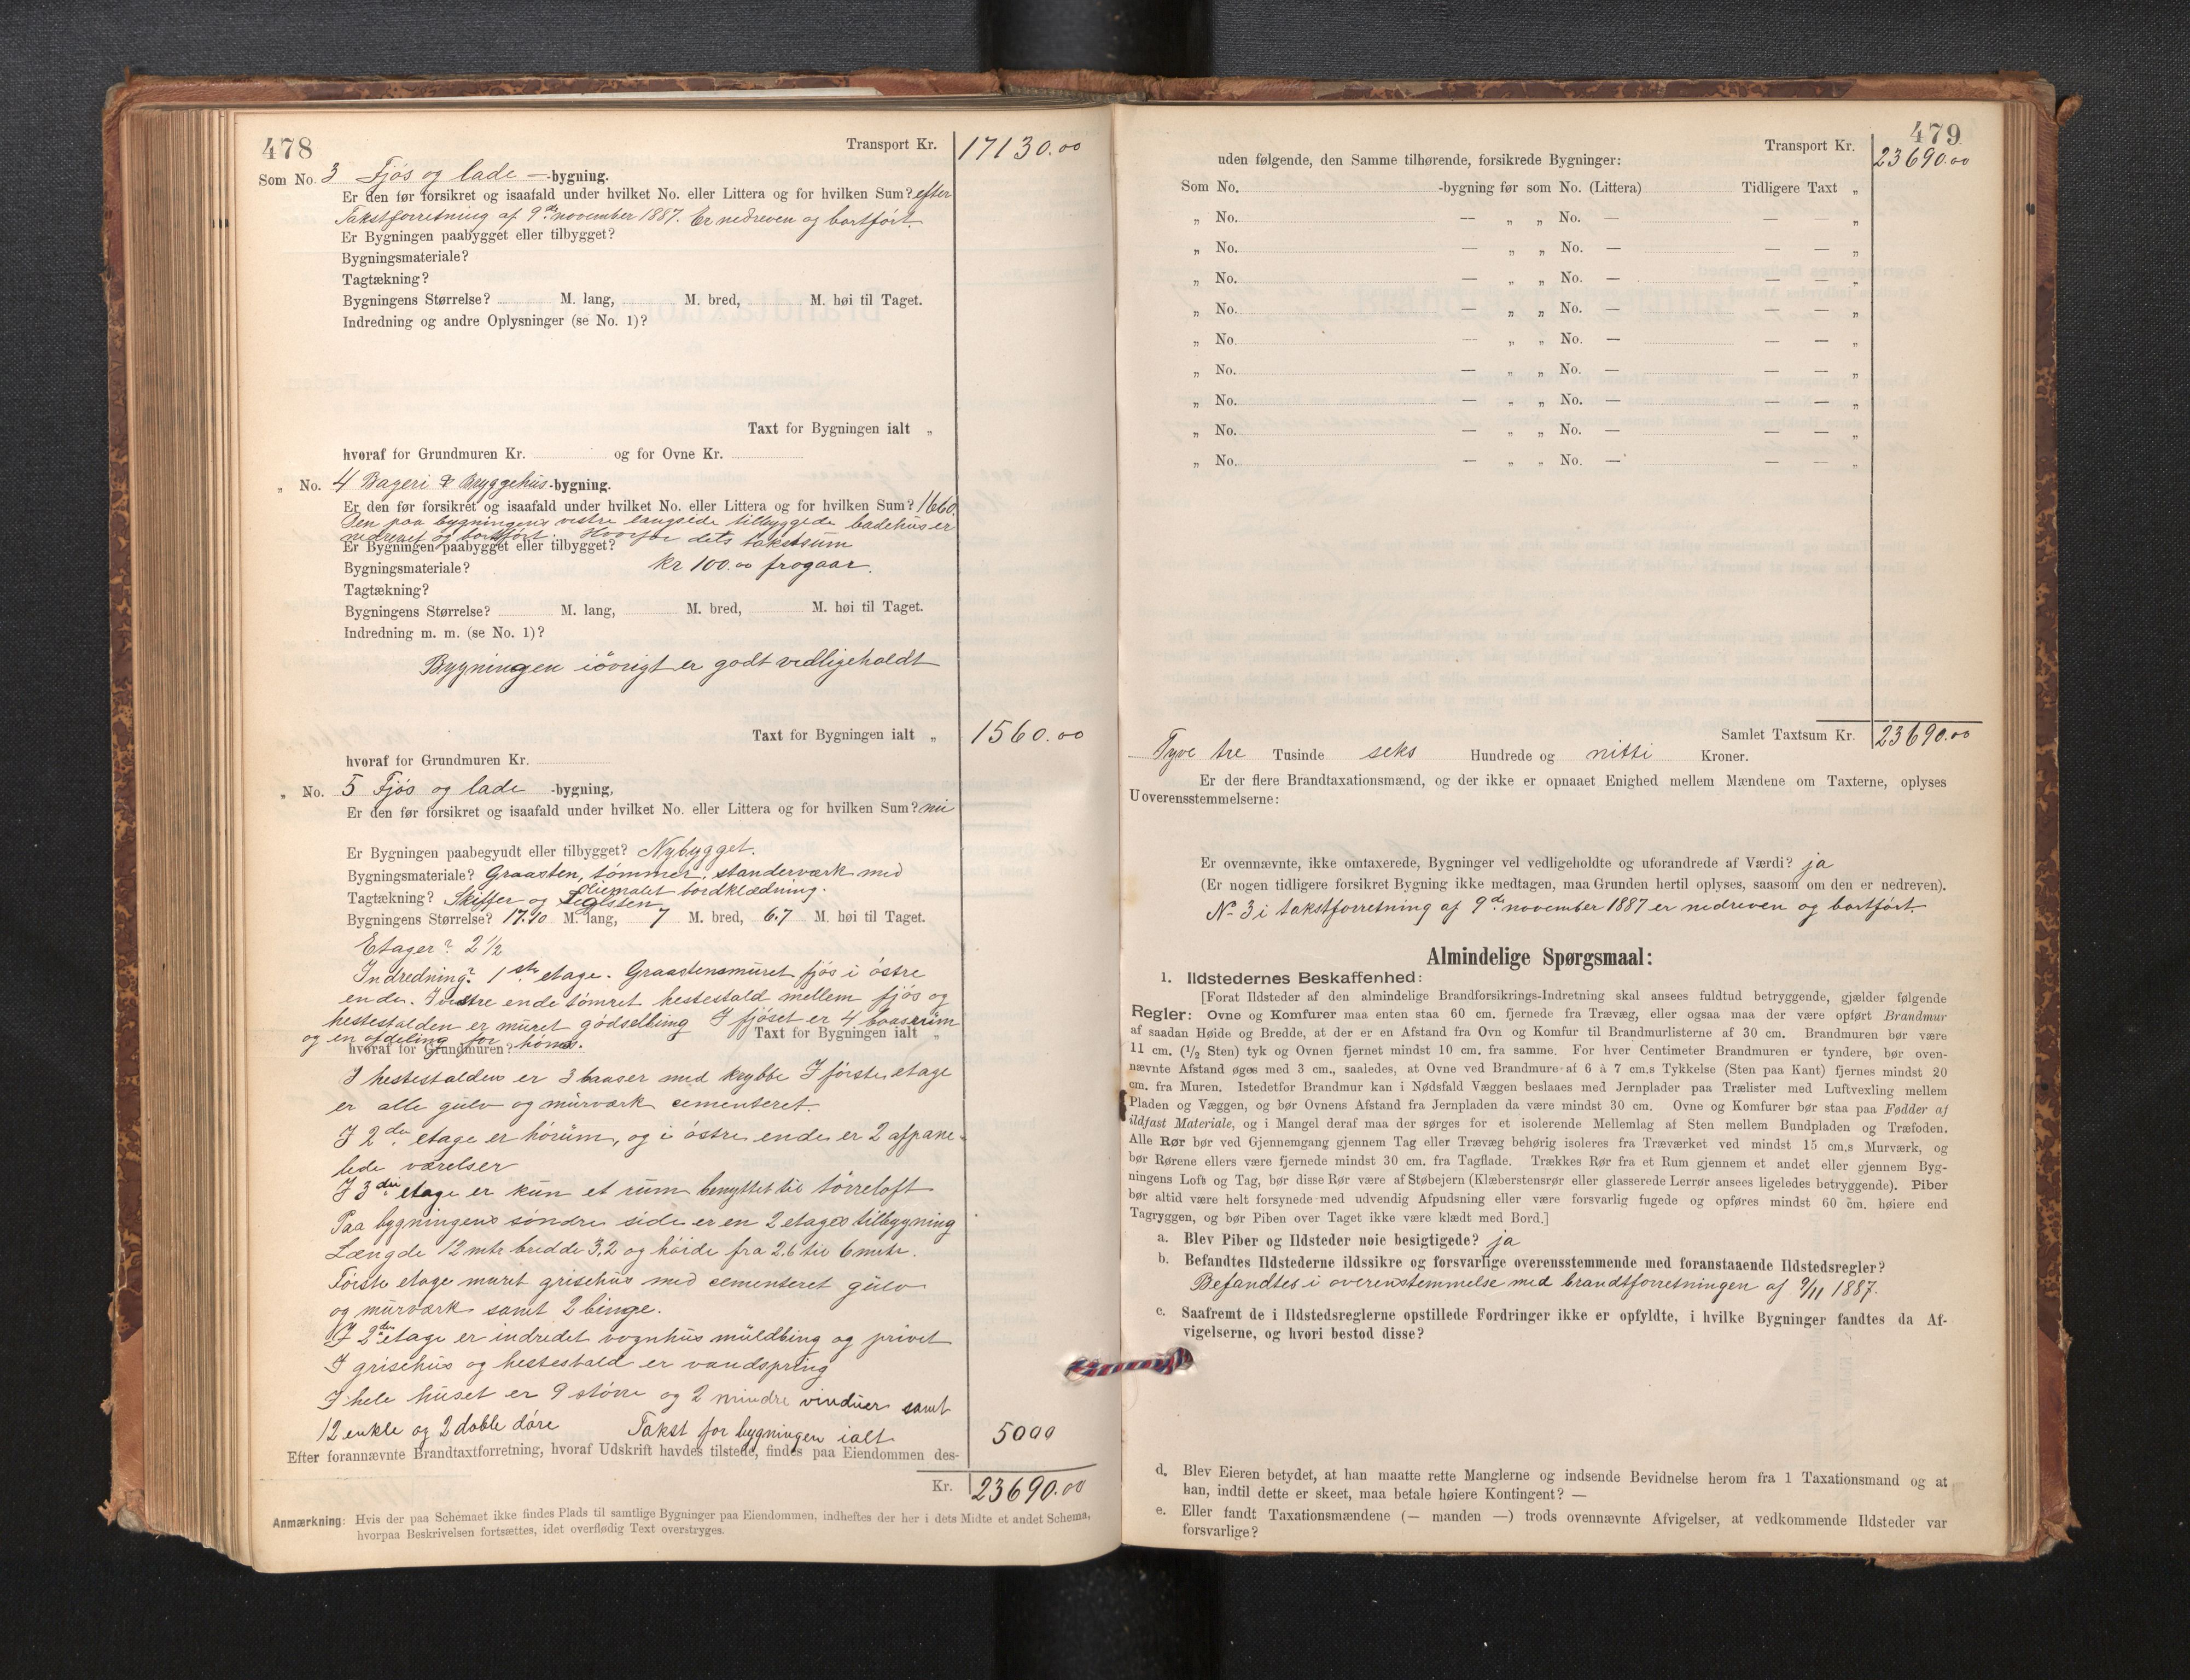 478
Transport Kr. 17130.00
Som No. 3 Fjøs og lade -bygning.
Er den før forsikret og isaafald under hvilket No. eller Littera og for hvilken Sum? efter
Takstforretning af 9de november 1887. Er nedreven og bortført.
Er Bygningen paabygget eller tilbygget?
Bygningsmateriale?
Tagtækning?
Bygningens Størrelse? M. lang, M. bred, M. høi til Taget.
Indredning og andre Oplysninger (se No. 1)?
Taxt for Bygningen ialt „
hvoraf for Grundmuren Kr. og for Ovne Kr.
„ No. 4 Bageri & Bryggehus-bygning.
Er den før forsikret og isaafald under hvilket No. eller Littera og for hvilken Sum? 1660.
Den paa bygningens vestre langside tilbyggede badehus er
nedrevet og bortført. Hvorfor dets takstsum
Er Bygningen paabygget eller tilbygget?
Bygningsmateriale? kr 100.00 frogaar.
Tagtækning?
Bygningens Størrelse? M. lang, M. bred, M. høi til Taget.
Indredning m. m. (se No. 1)?
Bygningen iøvrigt er godt vedligeholdt
Taxt for Bygningen ialt „ 1560.00
hvoraf for Grundmuren Kr.
„ No. 5 Fjøs og lade -bygning,
Er den før forsikret og isaafald under hvilket No. eller Littera og for hvilken Sum? nei
Er Bygningen paabegyndt eller tilbygget? Nybygget.
Bygningsmateriale? Graasten, tømmer, standerværk med
oliemalet bordklædning.
Tagtækning? Skiffer og Teglsten
Bygningens Størrelse? 17.10 M. lang, 7 M. bred, 6.7 M. høi til Taget.
Etager? 2 1/2
Indredning? 1ste etage. Graastensmuret fjøs i østre
ende. I vestre ende tømret hestestald mellem fjøs og
hestestalden er muret gødselbing I fjøset er 4 baasrum
Taxt for Bygningen ialt „
og en afdeling for høns.
hvoraf for Grundmuren?
I hestestalden er 3 baaser med krybbe I første etage
er alle gulv og murværk cementeret.
I 2den etage er hørum, og i østre ende er 2 afpane-
lede værelser
I 3die etage er kun et rum benyttet til tørreloft
Paa bygningens søndre side er en 2 etages tilbygning
Længde 12 mtr bredde 3,2 og høide fra 2.6 til 6 mtr.
Første etage muret grisehus med cementeret gulv
og murværk samt 2 binge.
I 2den etage er indredet vognhus muldbing og privet
I grisehus og hestestald er vandspring
I hele huset er 9 større og 2 mindre vinduer samt
12 enkle og 2 doble døre Takst for bygningen ialt 5000
Efter forannævnte Brandtaxtforretning, hvoraf Udskrift havdes tilstede, findes paa Eiendommen des-
Kr. 23690.00
Anmærkning: Hvis der paa Schemaet ikke findes Plads til samtlige Bygninger paa Eiendommen, indheftes der her i dets Midte et andet Schema,
hvorpaa Beskrivelsen fortsættes, idet overflødig Text overstryges.
479
Transport Kr. 23690.00
uden følgende, den Samme tilhørende, forsikrede Bygninger:
Som No. -bygning før som No. (Littera) Tidligere Taxt „
„ No. — „ „ No. — — — „
„ No. — „ „ No. — — — „
„ No. — „ „ No. — — — „
„ No. — „ „ No. — — — „
„ No. — „ „ No. — — — „
„ No. — „ „ No. — — — „
„ No. — „ „ No. — — — „
„ No. — „ „ No. — — — „
„ No. — „ „ No. — — — „
Samlet Taxtsum Kr. 23690.00
Tyve tre Tusinde seks Hundrede og nitti Kroner.
Er der flere Brandtaxationsmænd, og der ikke er opnaaet Enighed mellem Mændene om Taxterne, oplyses
Uoverensstemmelserne:
Er ovennævnte, ikke omtaxerede, Bygninger vel vedligeholdte og uforandrede af Værdi? ja
(Er nogen tidligere forsikret Bygning ikke medtagen, maa Grunden hertil oplyses, saasom om den er nedreven).
No 3 i takstforretning af 9de november 1887 er nedreven og bortført.
Almindelige Spørgsmaal:
1. Ildstedernes Beskaffenhed:
[Forat Ildsteder af den almindelige Brandforsikrings-Indretning skal ansees fuldtud betryggende, gjælder følgende
Regler: Ovne og Komfurer maa enten staa 60 cm. fjernede fra Trævæg, eller ogsaa maa der være opført Brandmur
af saadan Høide og Bredde, at der er en Afstand fra Ovn og Komfur til Brandmurlisterne af 30 cm. Brandmuren bør være
11 cm. (1/2 Sten) tyk og Ovnen fjernet mindst 10 cm. fra samme. For hver Centimeter Brandmuren er tyndere, bør oven-
nævnte Afstand øges med 3 cm., saaledes, at Ovne ved Brandmure af 6 à 7 cm.s Tykkelse (Sten paa Kant) fjernes mindst 20
cm. fra Muren. Istedetfor Brandmur kan i Nødsfald Væggen beslaaes med Jernplader paa Trælister med Luftvexling mellem
Pladen og Væggen, og bør Ovnens Afstand fra Jernpladen da være mindst 30 cm. Ovne og Komfurer bør staa paa Fødder af
ildfast Materiale, og i Mangel deraf maa der sørges for et isolerende Mellemlag af Sten mellem Bundpladen og Træfoden.
Alle Rør bør ved Gjennemgang gjennem Tag eller Trævæg behørig isoleres fra Træværket ved mindst 15 cm.s Murværk, og
bør Rørene ellers være fjernede mindst 30 cm. fra Tagflade. Trækkes Rør fra et Rum gjennem et andet eller gjennem Byg-
ningens Loft og Tag, bør disse Rør være af Støbejern (Klæberstensrør eller glasserede Lerrør ansees ligeledes betryggende). Piber
bør altid være helt forsynede med udvendig Afpudsning eller være forsvarlig fugede og opføres mindst 60 cm. høiere end
Tagryggen, og bør Piben over Taget ikke være klædt med Bord.]
a. Blev Piber og Ildsteder nøie besigtigede? ja
b. Befandtes Ildstederne ildssikre og forsvarlige overensstemmende med foranstaaende Ildstedsregler?
Befandtes i overenstemmelse med brandtforretningen af 9/11 1887.
c. Saafremt de i Ildstedsreglerne opstillede Fordringer ikke er opfyldte, i hvilke Bygninger fandtes da Af-
vigelserne, og hvori bestod disse?
d. Blev Eieren betydet, at han maatte rette Manglerne og indsende Bevidnelse herom fra 1 Taxationsmand og at
han, indtil dette er skeet, maa betale høiere Kontingent? —
e. Eller fandt Taxationsmændene (— manden —) trods ovennævnte Afvigelser, at vedkommende Ildsteder var
forsvarlige?